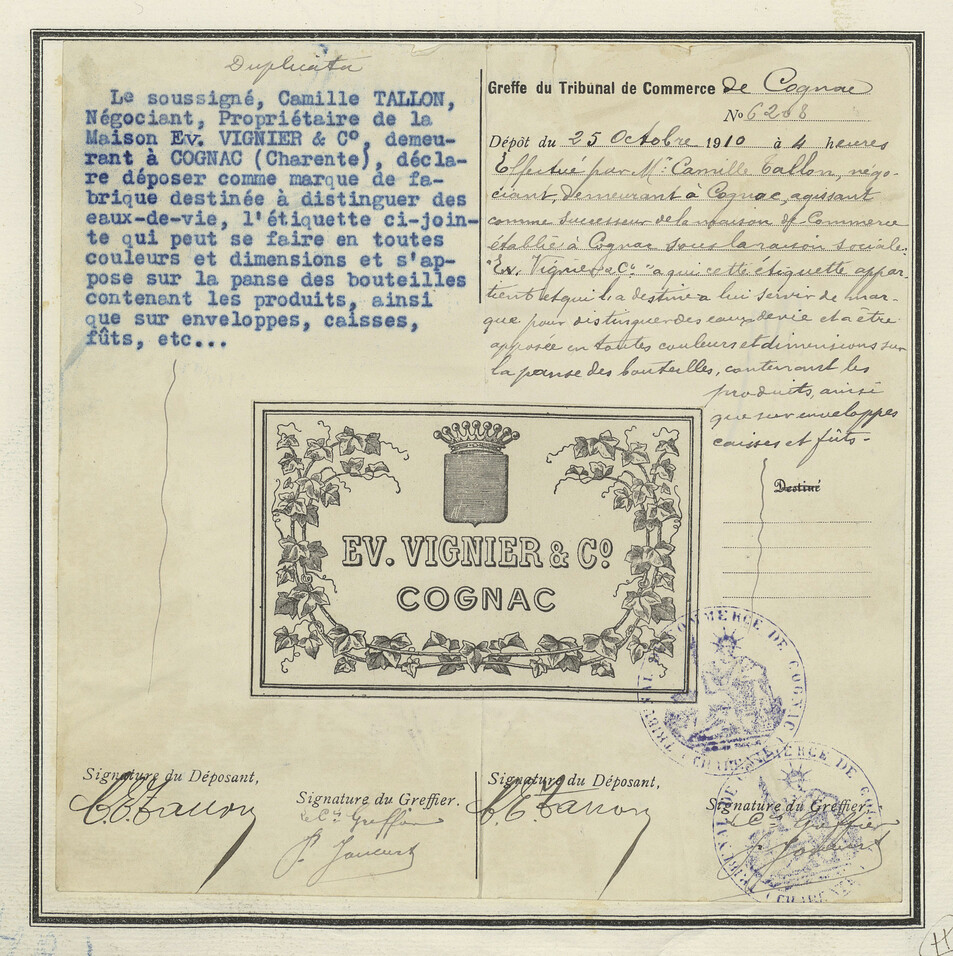 Duplicata
Le soussigné, Camille TALLON,
Négociant, Propriétaire de la
Maison Ev. VIGNIER & Cº, demeu-
rant à COGNAC (Charente), décla-
re déposer comme marque de fa-
brique destinée à distinguer des
eaux-de-vie, l'étiquette ci-join-
te qui peut se faire en toutes
couleurs et dimensions et s'ap-
pose sur la panse des bouteilles
contenant les produits, ainsi
que sur enveloppes, caisses,
fûts, etc...
Greffe du Tribunal de Commerce de Cognac
Nº 6268
Dépôt du 25 Octobre 1910 à 4 heures
Effectué par Mr. Camille Tallon, négo-
ciant, demeurant à Cognac, agissant
comme successeur de la maison de Commerce
établie à Cognac sous la raison sociale
"Ev. Vignier & Cº" a qui cette étiquette appar-
tient et qui l'a destine a lui servir de mar-
que pour distinguer des eaux de vie et a être
apposée en toutes couleurs et dimensions sur
la panse des bouteilles, contenant les
produits, ainsi
que sur enveloppes
caisses et fûts-
Destiné
EV. VIGNIER & Cº
COGNAC
TRIBUNAL DE COMMERCE DE COGNAC
(CHARENTE)
TRIBUNAL DE COMMERCE DE COGNAC
(CHARENTE)
Signature du Déposant,
Signature du Greffier.
Le Cis Greffier
Signature du Déposant,
Signature du Greffier.
Le Cis Greffier